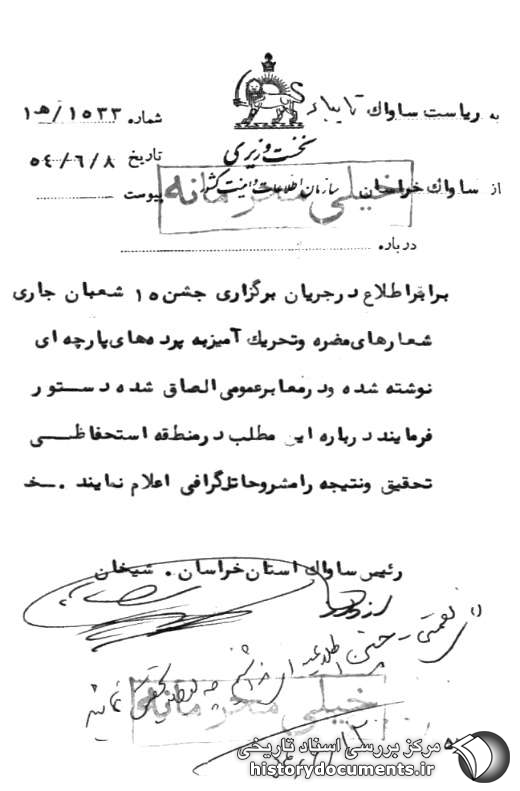 به ریاست ساواك تایباد
شماره ۱۵۳۳/هـ۱
نخست وزیری
تاریخ ۵٤/٦/۸
از ساواك خراسان
سازمان اطلاعات و امنیت کشور
پیوست
خیلی محرمانه
درباره
برابر اطلاع در جریان برگزاری جشن ۱۵ شعبان جاری
شعارهای مضره و تحریك آمیز به پرده های پارچه ای
نوشته شده و در معابر عمومی الصاق شده دستور
فرمایند درباره این مطلب در منطقه استحفاظی
تحقیق و نتیجه را مشروحا تلگرافی اعلام نمایند . ـخ
رئیس ساواك استان خراسان . شیخان
خیلی محرمانه
مرکز بررسی اسناد تاریخی
historydocuments.ir